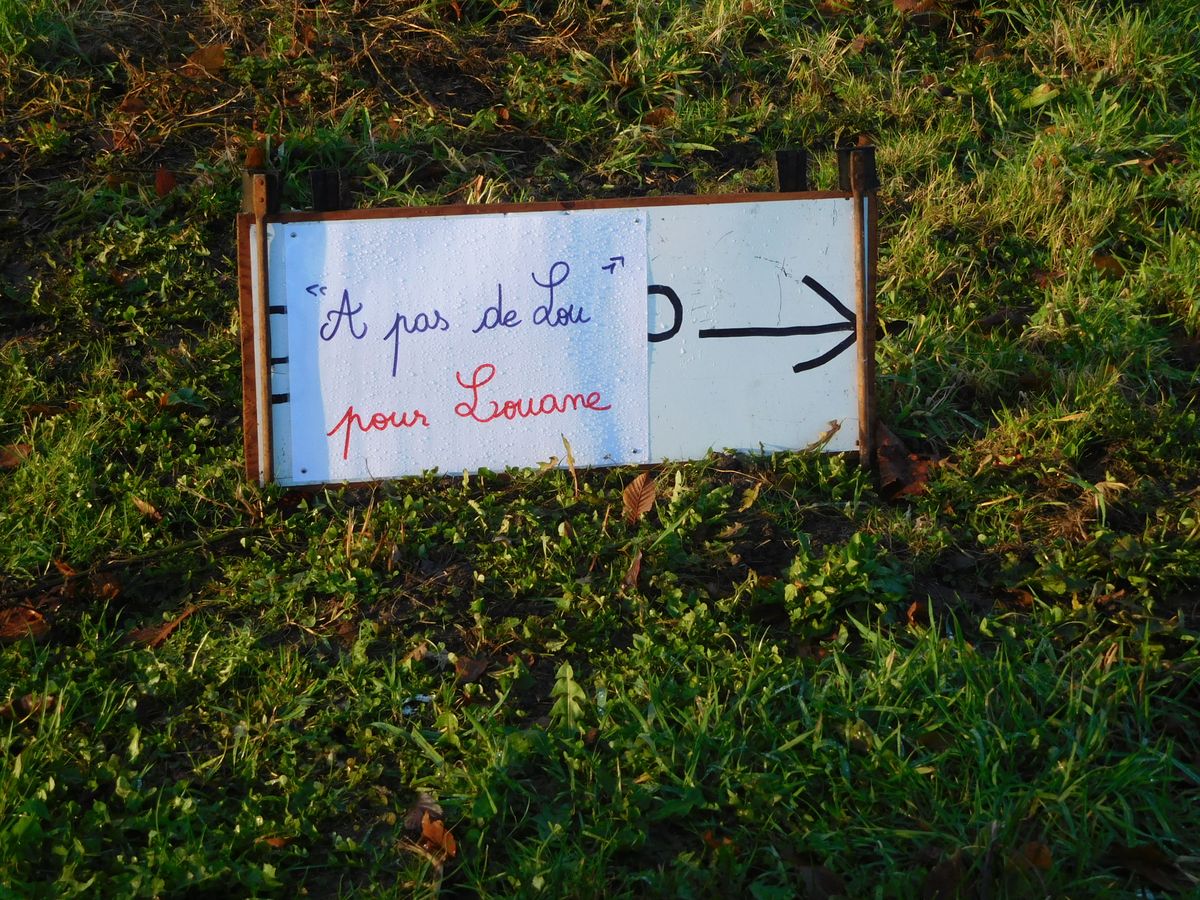 “A pas de Lou”
pour Louane